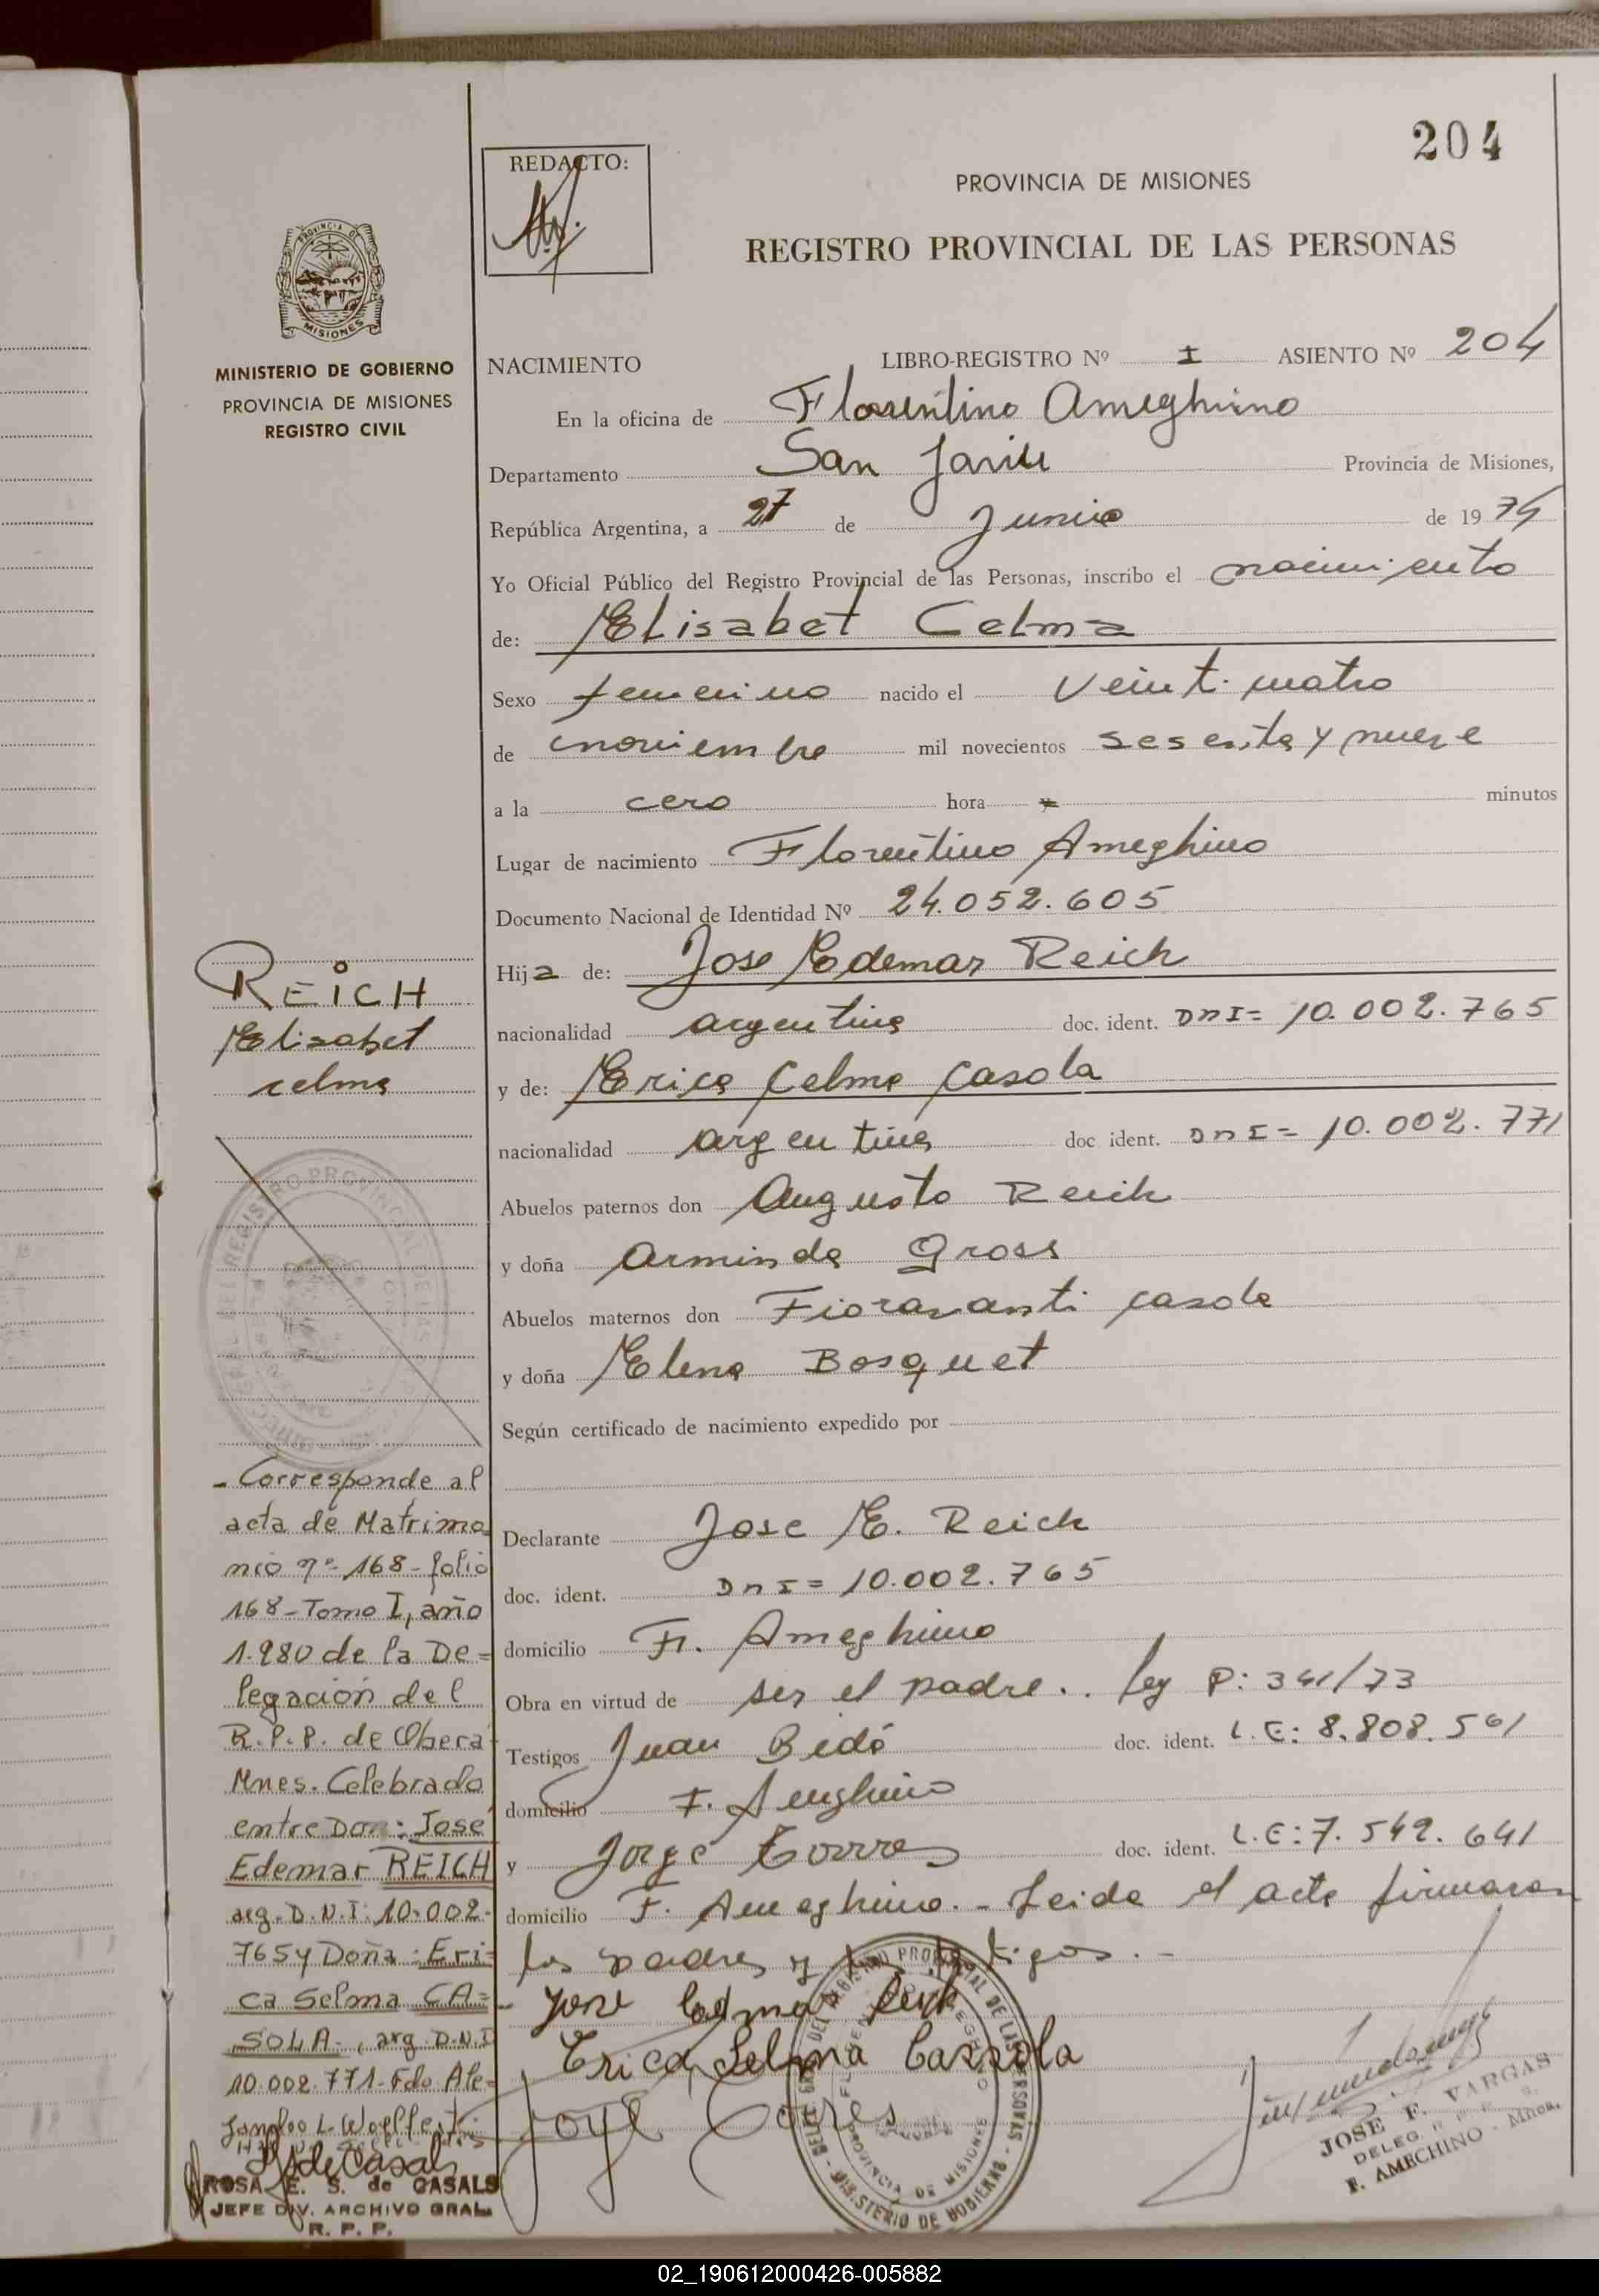 204
REDACTO:
PROVINCIA DE MISIONES
REGISTRO PROVINCIAL DE LAS PERSONAS
PROVINCIA DE
MISIONES
MINISTERIO DE GOBIERNO
PROVINCIA DE MISIONES
REGISTRO CIVIL
NACIMIENTO LIBRO-REGISTRO Nº I ASIENTO Nº 204
En la oficina de Florentino Ameghino
Departamento San Javier Provincia de Misiones,
República Argentina, a 27 de Junio de 1974
Yo Oficial Público del Registro Provincial de las Personas, inscribo el nacimiento
de: Elisabet Celma
Sexo femenino nacido el veinticuatro
de noviembre mil novecientos sesenta y nueve
a la cero hora minutos
Lugar de nacimiento Florentino Ameghino
Documento Nacional de Identidad Nº 24.052.605
Hija de: Jose Edemar Reich
nacionalidad argentina doc. ident. DNI= 10.002.765
y de: Erica Celma Casola
nacionalidad argentina doc ident. DNI= 10.002.771
Abuelos paternos don Augusto Reich
y doña Arminda Gross
Abuelos maternos don Fioravanti Casola
y doña Elena Bosquet
Según certificado de nacimiento expedido por
Declarante Jose E. Reich
doc. ident. DNI= 10.002.765
domicilio Fl. Ameghino
Obra en virtud de ser el padre.. Ley P: 341/73
Testigos Juan Bedó doc. ident. L.E: 8.808.561
domicilio F. Ameghino
y Jorge Torres doc. ident. L.E: 7.542.641
domicilio F. Ameghino.- Leida el acta firmaran
los padres y los testigos.-
Jose Edmar Reich
Erica Selma Cassola
REICH
Elisabet
Celma
- Corresponde al
acta de Matrimo
nio nº 168- folio
168-Tomo I, año
1.980 de la De=
legación del
R.P.P. de Oberá
Mnes. Celebrado
entre Don: José
Edemar REICH
arg. D.N.I. 10.002.
765 y Doña: Eri=
ca Selma CA=
SOLA-, arg D.N.I
10.002.771-Fdo Ale=
ROSA E. S. de CASALS
JEFE DIV. ARCHIVO GRAL.
R. P. P.
JOSE F. VARGAS
DELEG. R. P. P.
F. AMEGHINO - Mnes.
02_190612000426-005882